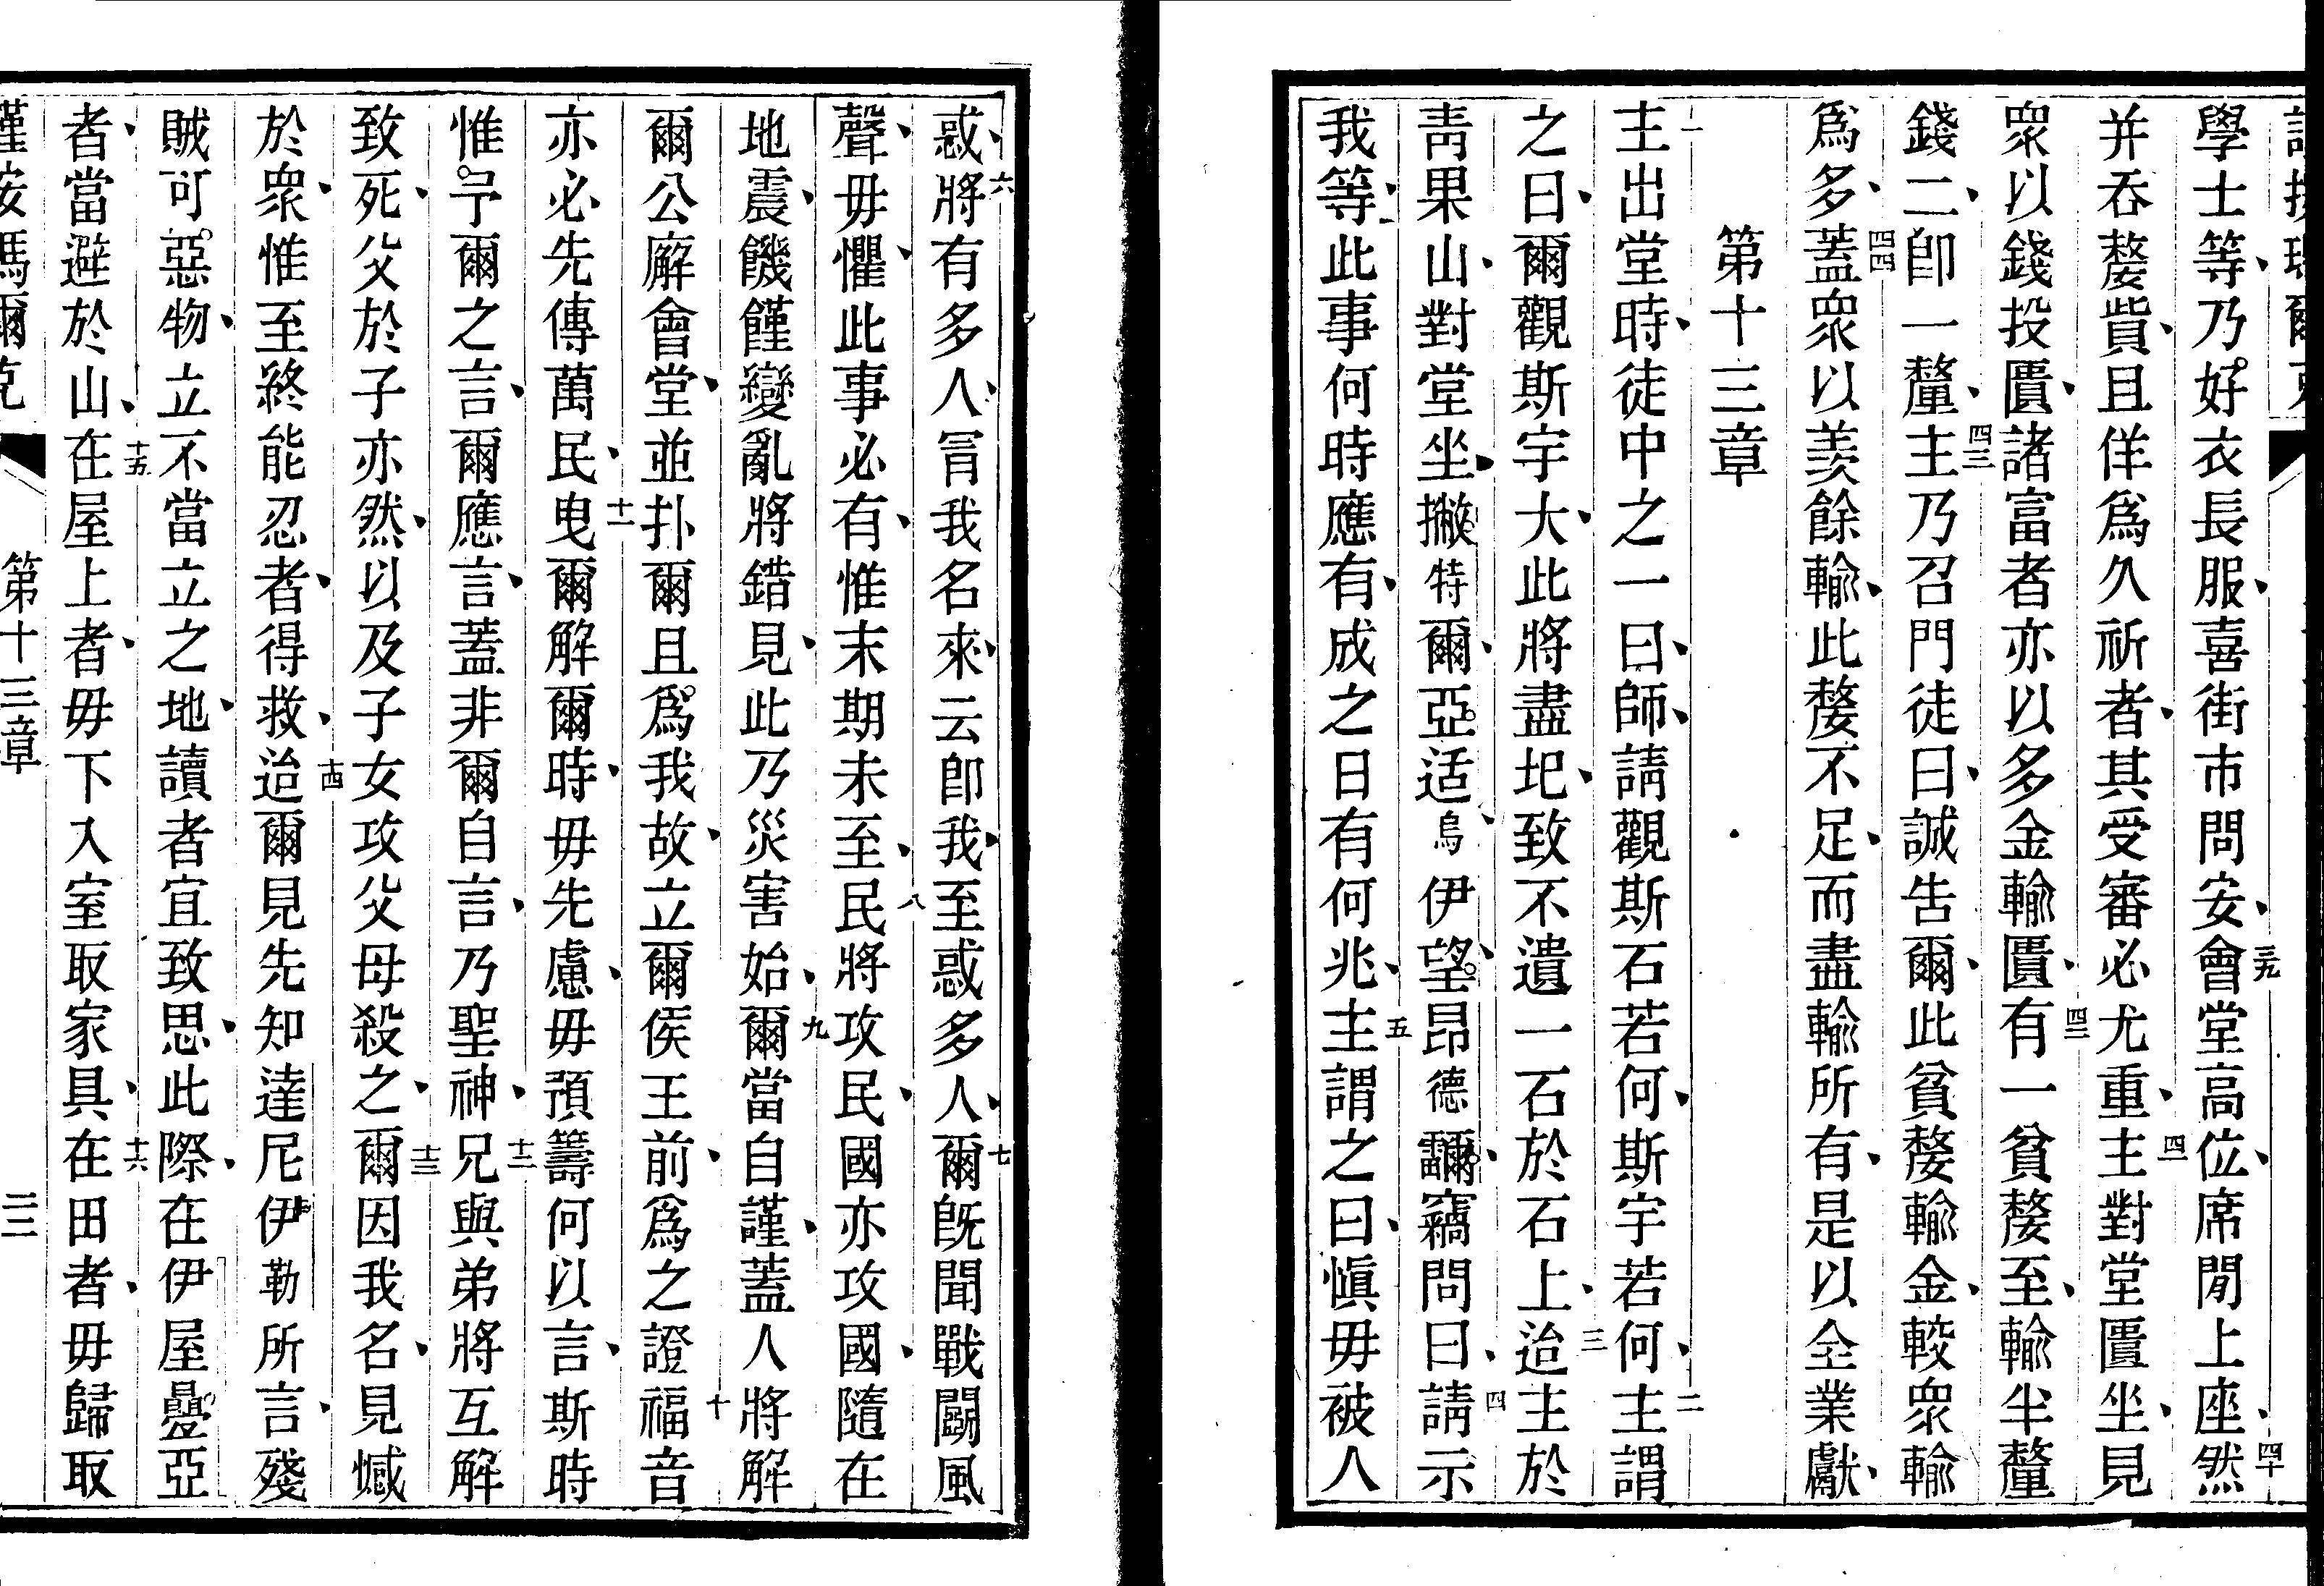 學士等乃好衣長服喜街市問安三九會堂高位席閒上座四十然
并吞嫠貲且佯爲久祈者其受審必尤重四一主對堂匱坐見
眾以錢投匱諸富者亦以多金輸匱四二有一貧嫠至輸半釐
錢二卽一釐四三主乃召門徒曰誠告爾此貧嫠輸金較眾輸
爲多四四蓋眾以羨餘輸此嫠不足而盡輸所有是以全業獻
第十三章
一主出堂時徒中之一曰師請觀斯石若何斯宇若何二主謂
之曰爾觀斯宇大此將盡圮致不遺一石於石上三迨主於
靑果山對堂坐撇特爾亞适烏伊望昂德爾竊問曰四請示
我等此事何時應有成之日有何兆五主謂之曰愼毋被人
惑六將有多人冐我名來云卽我至惑多人七爾旣聞戰鬭風
聲毋懼此事必有惟末期未至八民將攻民國亦攻國隨在
地震饑饉變亂將錯見此乃災害始九爾當自謹蓋人將解
爾公廨會堂並扑爾且爲我故立爾侯王前爲之證十福音
亦必先傳萬民十一曳爾解爾時毋先慮毋預籌何以言斯時
惟予爾之言爾應言蓋非爾自言乃聖神十二兄與弟將互解
致死父於子亦然以及子女攻父母殺之十三爾因我名見憾
於眾惟至終能忍者得救十四迨爾見先知達尼伊勒所言殘
賊可惡物立不當立之地讀者宜致思此際在伊屋疊亞
者當避於山十五在屋上者毋下入室取家具十六在田者毋歸取
謹按瑪爾克
第十三章
三二